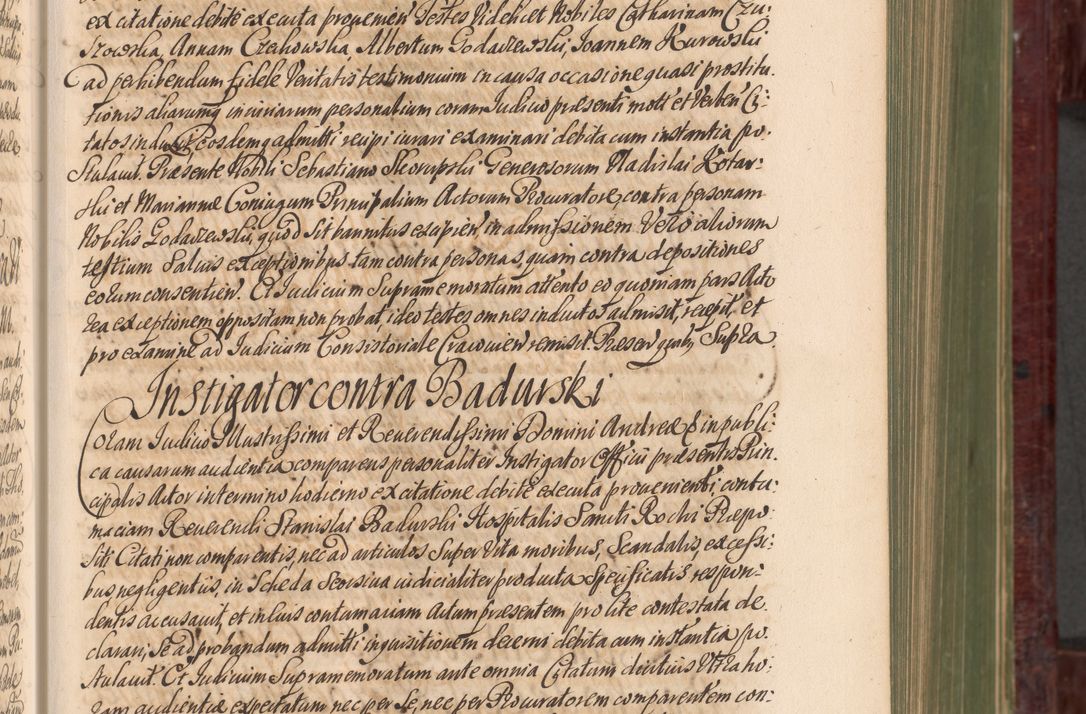 ex citatione debite executa provenien̄ Testes Videlicet Nobiles Catharinam Czu-
szowska, Annam Czechowska, Albertum Godaszewski, Joannem Kurowski
ad perhibendum fidele Veritatis testimonium in causa occasione quasi prostitu-
tionis aliarumq injuriarum personalium coram Judicio præsenti mott̄ et Verten̄ Ci-
tatos induxit Eosdemq admitti recipi iurari examinari debita cum instantia po-
stulavit. Præsente Nobili Sebastiano Skorupski Generosorum Vladislai Kotar-
ski et Mariannæ Conjugum Principalium Actorum Procuratore, contra personam
Nobilis Godaszewski, quod sit bannitus excipien̄, in admissionem Vero aliorum
testium Salvis exceptionibus tam contra personas, quam contra depositiones
eorum consentien̄. Et Judicium Supramemoratum attento eo quoniam pars Acto
rea exceptionem oppositam non probat, ideo testes omnes inductos admisit, recepit, et
pro examine ad Judicium Consistoriale Cracovien̄ remisit. Præsen̄ quibus Supra
Instigator contra Badurski
Coram Judicio Illustrissimi et Reverendissimi Domini Andreæ &c in publi-
ca causarum audientia comparens personaliter Instigator Officii præsentis Prin-
cipalis Actor in termino hodierno ex citatione debite executa provenienti, contu-
maciam Reverendi Stanislai Badurski Hospitalis Sancti Rochi Præpo-
siti Citati non comparentis, nec ad articulos Super Vita moribus, Scandalis, excessi-
bus negligentiis, in Scheda Seorsiva iudicialiter producta Specificatis respon-
dentis accusavit, et in eius contumaciam Actum præsentem pro lite contestata de-
clarari, Se ad probandum admitti inquisitionem decerni debita cum instantia po-
stulavit. Et Judicium Supramemoratum ante omnia Citatum diutius Ultra ho-
ram audientiæ expectatum nec per Se, nec per Procuratorem comparentem con-